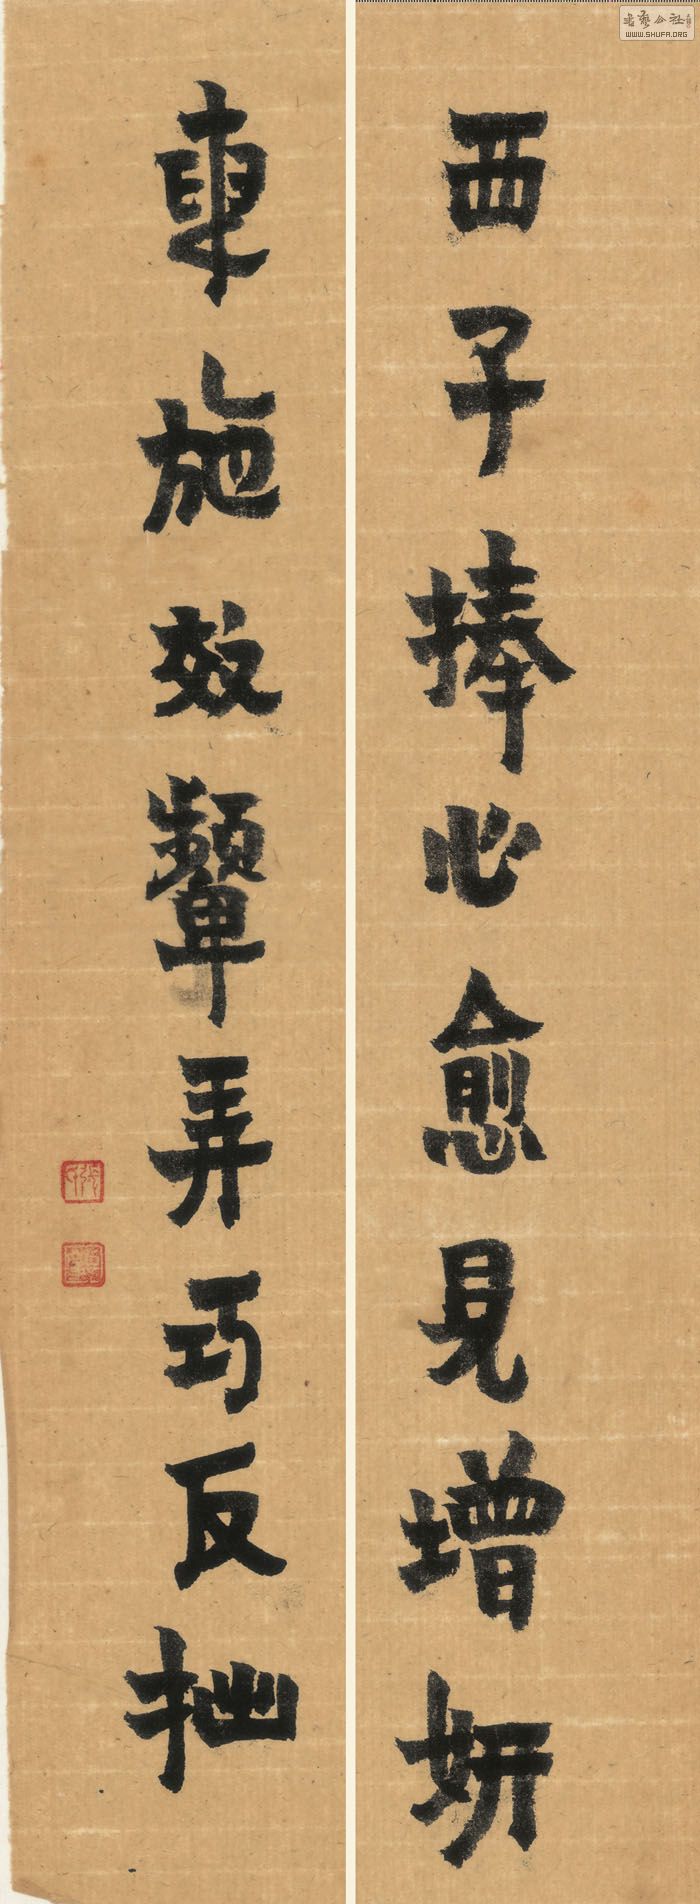 西子捧心愈見增妍
東施效顰弄巧反拙
書藝公社
WWW.SHUFA.ORG